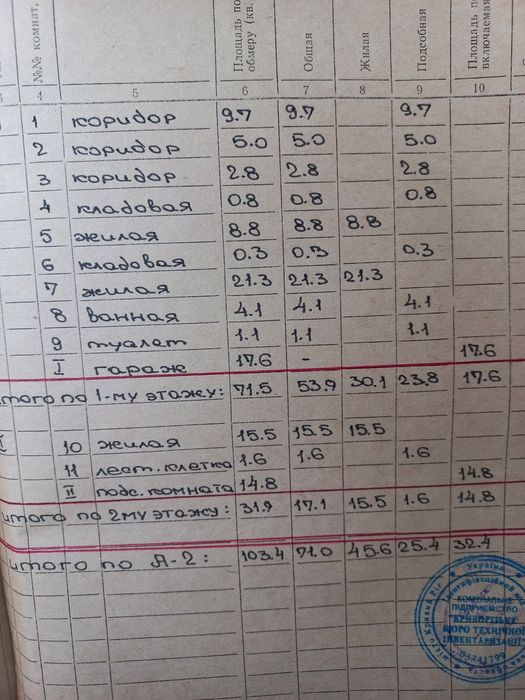 №№ комнат,
Площадь по
обмеру (кв.
Общая
Жилая
Подсобная
Площадь
включаемая
3 4 5 6 7 8 9 10
1 коридор 9.7 9.7 9.7
2 коридор 5.0 5.0 5.0
3 коридор 2.8 2.8 2.8
4 кладовая 0.8 0.8 0.8
5 жилая 8.8 8.8 8.8
6 кладовая 0.3 0.3 0.3
7 жилая 21.3 21.3 21.3
8 ванная 4.1 4.1 4.1
9 туалет 1.1 1.1 1.1
I гараж 17.6 - 17.6
итого по 1-му этажу: 71.5 53.9 30.1 23,8 17.6
10 жилая 15.5 15.5 15.5
11 лест. клетка 1.6 1.6 1.6
II подс. комната 14.8 14.8
итого по 2му этажу: 31.9 17.1 15.5 1.6 14.8
итого по А-2: 103.4 71.0 45.6 25.4 32.4
Україна
місто Кривий Ріг
КОМУНАЛЬНЕ
ПІДПРИЄМСТВО
"КРИВОРІЗЬКЕ
БЮРО ТЕХНІЧНОЇ
ІНВЕНТАРИЗАЦІЇ"
03341799